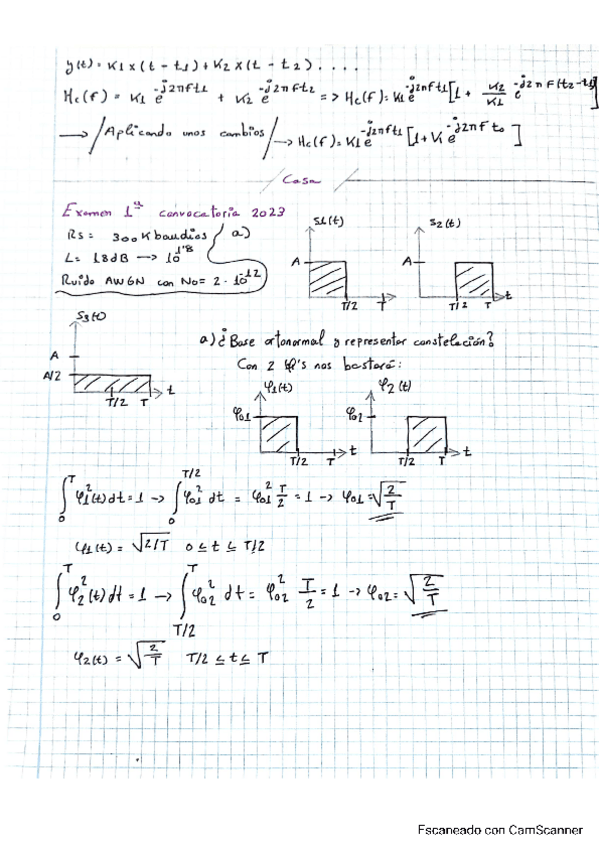 y(t) = K1 x (t - t1) + K2 x (t - t2) ....
Hc(f) = K1 e^-j2πft1 + K2 e^-j2πft2 => Hc(f) = K1 e^-j2πft1 [1 + K2/K1 e^-j2πf(t2-t1)]
→ /Aplicando unos cambios/ → Hc(f) = K1 e^-j2πft1 [1 + K e^-j2πft0]
Casa
Examen 1ª convocatoria 2023
Rs = 300 Kbaudios a)
L = 18dB → 10^1'8
Ruido AWGN con No = 2 · 10^-12
S1(t)
A
T/2 T
S2(t)
A
T/2 T t
S3(t)
A
A/2
T/2 T t
a) ¿Base ortonormal y representar constelación?
Con 2 φ's nos bastará:
φ1(t)
φ01
T/2 T t
φ2(t)
φ02
T/2 T t
∫₀^T φ1²(t)dt = 1 → ∫₀^T/2 φ01² dt = φ01² T/2 = 1 → φ01 = √(2/T)
φ1(t) = √(2/T) 0 ≤ t ≤ T/2
∫₀^T φ2²(t)dt = 1 → ∫_T/2^T φ02² dt = φ02² T/2 = 1 → φ02 = √(2/T)
φ2(t) = √(2/T) T/2 ≤ t ≤ T
Escaneado con CamScanner